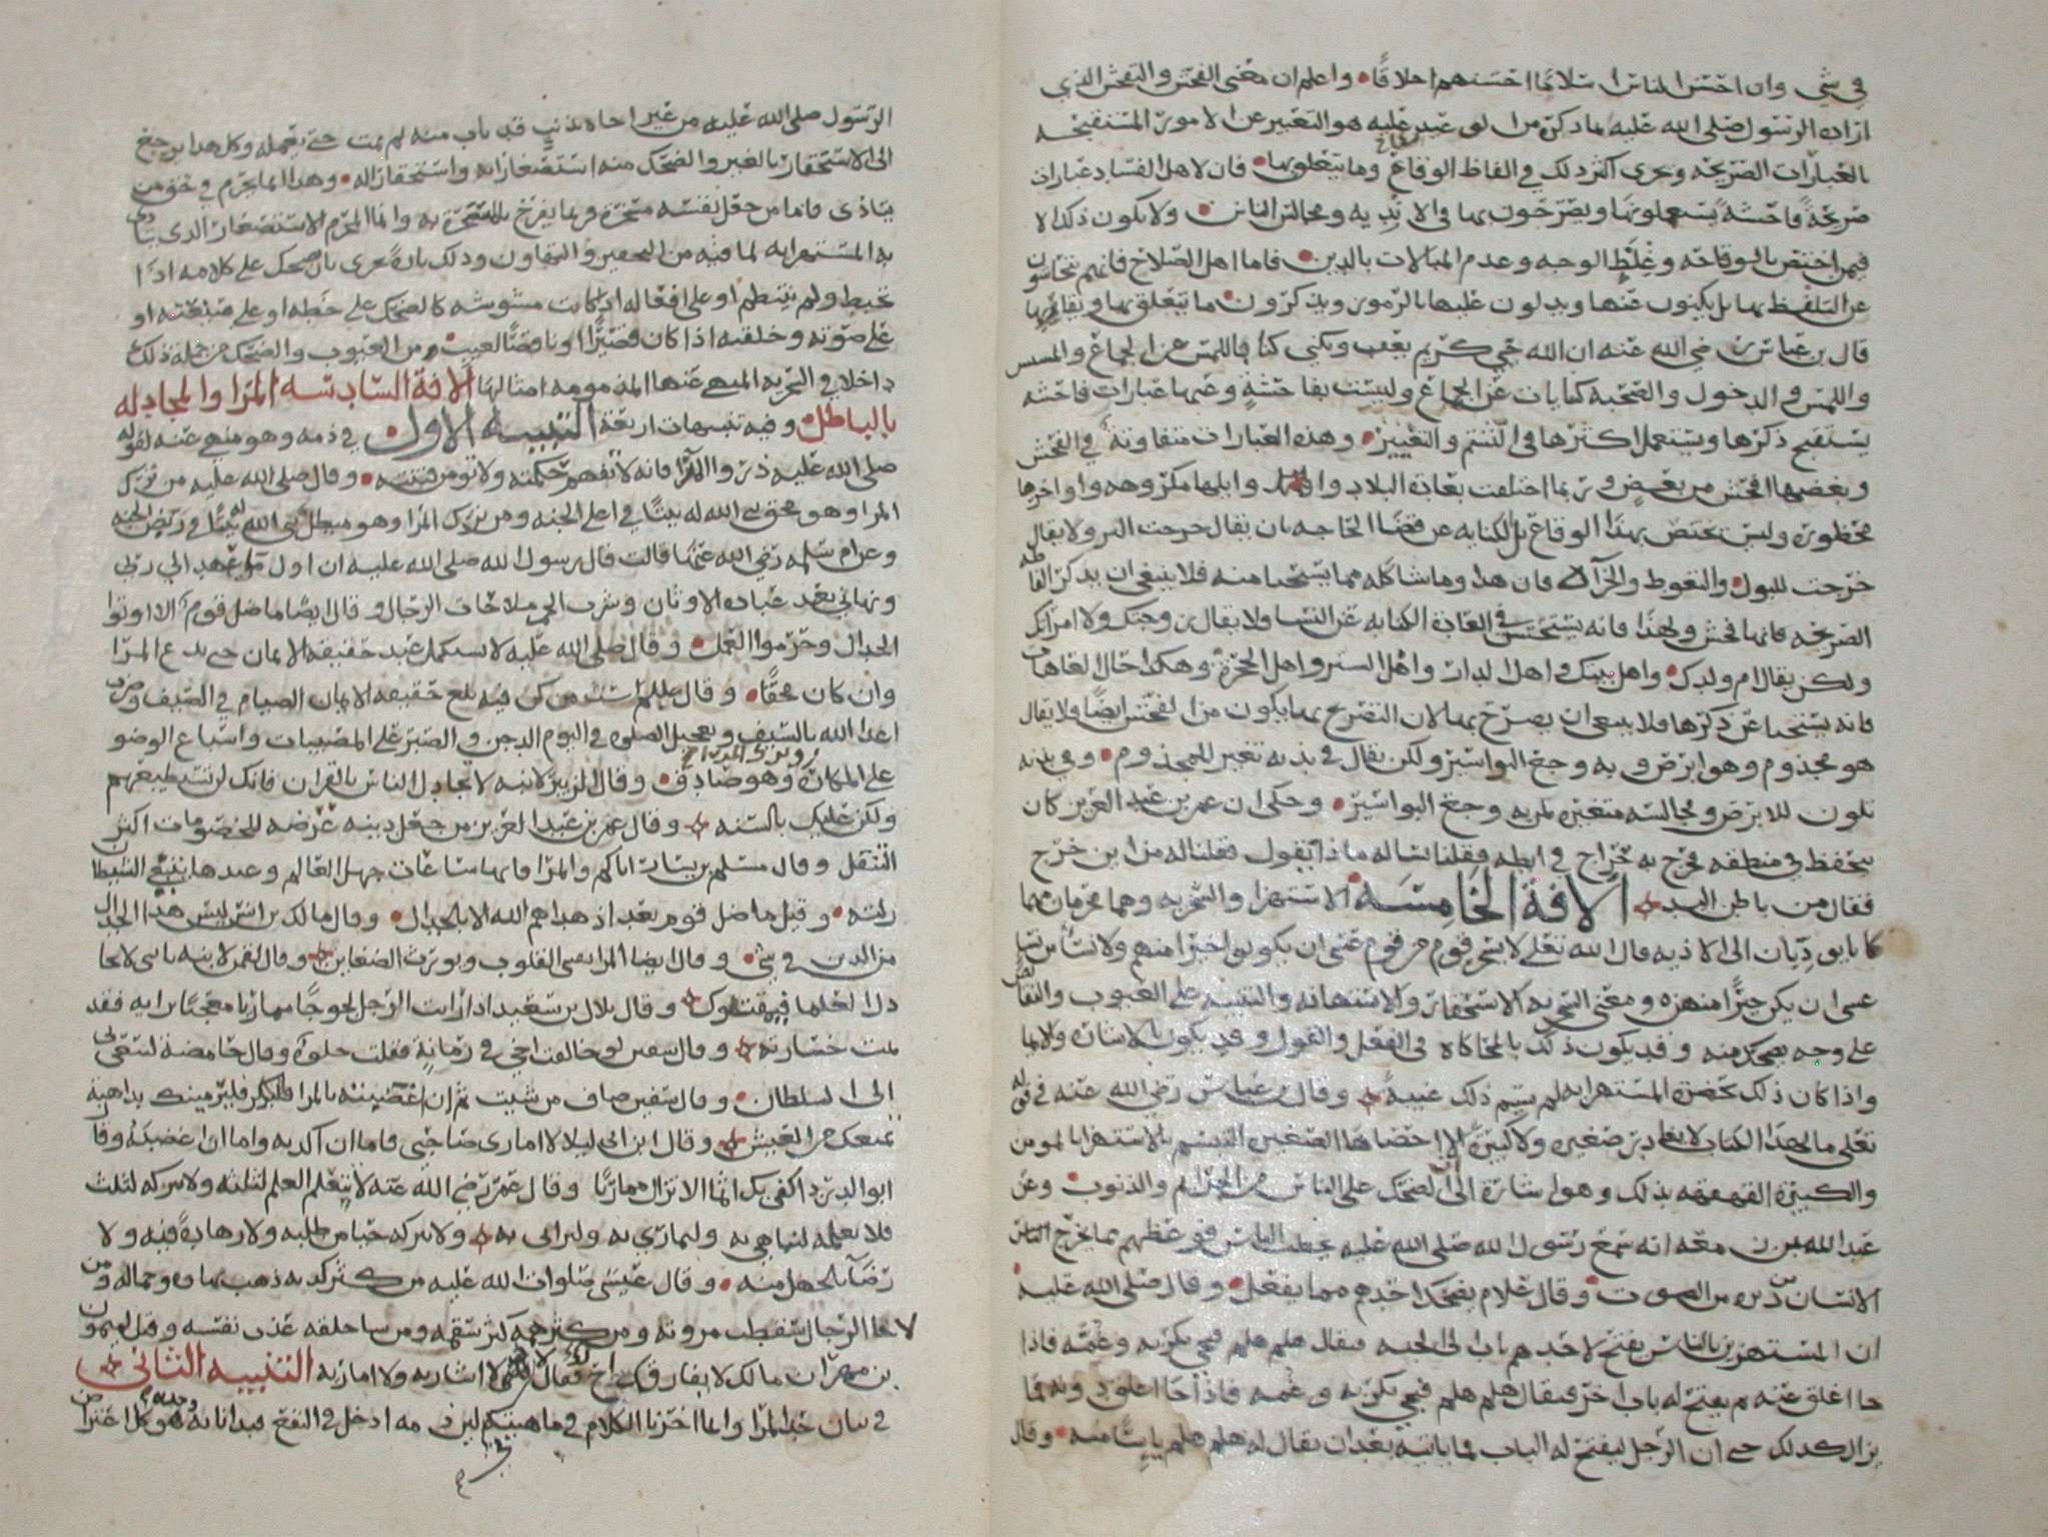 في شي وان احسن الناس اسلاما احسنهم اخلاقا واعلم ان معنى الفحش والتفحش الذي
اراده الرسول صلى الله عليه بما ذكرن من اوى عبد عليه هو التعبير عن الامور المستقبحه
بالعبارات الصريحه ويجرى اكثر ذلك في الفاظ الوقاع وما يتعلق بها فان لاهل الفساد عبارات
صريحة فاحشة يستعملونها ويصرحون بها في الاندية ومجالس الناس ولا يكون ذلك الا
فيمن اختص بالوقاحه وغلظ الوجه وعدم المبالات بالدين فاما اهل الصلاح فانهم يتحاشون
عن التلفظ بها بل يكنون عنها ويدلون عليها بالرموز ويذكرون ما يتعلق بها ويقاربها
قال بن عباس رضي الله عنه ان الله حيي كريم يعف ويكني كنا باللمس عن الجماع والمسس
واللمس والدخول والصحبه كنايات عن الجماع وليست بفاحشة وعنها عبارات فاحشه
يستقبح ذكرها ويستعمل اكثرها في الشتم والتعيير وهذه العبارات متفاوتة في الفحش
وبعضها افحش من بعض وربما اختلفت بعادة البلاد واوايلها مكروهه واواخرها
محظوره وليس يختص بهذا الوقاع بل الكنايه عن قضا الحاجه بان يقال خرجت البر ولا يقال
خرجت للبول والتغوط والخرا فان هذا وما شاكله مما يستحيا منه فلا ينبغي ان يذكر الفاظه
الصريحه فانها فحش ولهذا فانه يستحسن في العادة الكنايه عن النسا ولا يقال زوجتك ولا امراتك
ولكن يقال ام ولدك واهل بيتك واهل الدار واهل الستر واهل الحجرة وهكذا حال العاهات
فانه يستحيا عن ذكرها فلا ينبغي ان يصرح بها لان التصريح بها يكون من الفحش ايضا ولا يقال
هو مجذوم وهو ابرص وبه وجع البواسير ولكن يقال في بدنه تغير للمجذوم وفي بدنه
تلون للابرص ومجالسه متغيره لمن به وجع البواسير وحكي ان عمر بن عبد العزيز كان
يتحفظ في منطقه فخرج به خراج في ابطه فقلنا نساله ماذا يقول فقلنا له من اين خرج
فقال من باطن اليد الافة الخامسة الاستهزا والسخريه وهما محرمان مهما
كانا يوديان الى الاذيه قال الله تعلى لا يسخر قوم من قوم عسى ان يكونوا خيرا منهم ولا نسا من نسا
عسى ان يكن خيرا منهن ومعنى السخريه الاستحقار والاستهانه والتنبيه على العيوب والنقائص
على وجه يضحك منه وقد يكون ذلك بالمحاكاه في الفعل والقول وقد يكون بالاشاره والايما
واذا كان ذلك بحضرة المستهزا به لم يسم ذلك غيبة وقال بن عباس رضي الله عنه في قوله
تعلى مالهذا الكتاب لا يغادر صغيره ولا كبيرة الا احصاها الصغيره التبسم بالاستهزا بالمومن
والكبيرة القهقهه بذلك وهو اشارة الى ان الضحك على الناس من الجرايم والذنوب وعن
عبد الله بن زمعه انه سمع رسول الله صلى الله عليه يخطب الناس فوعظهم مما يخرج الناس
الانسان من دبره من الصوت وقال علام يضحك احدهم مما يفعل وقال صلى الله عليه
ان المستهزين بالناس يفتح لاحدهم باب الى الجنه فيقال هلم هلم فيجي بكربه وغمه فاذا
جا اغلق عنه ثم يفتح له باب اخر فيقال هلم هلم فيجي بكربه وغمه فاذا جا اغلق دونه فما
يزال كذلك حتى ان الرجل ليفتح له الباب فما ياتيه بعد ان يقال له هلم هلم ياسا منه وقال
الرسول صلى الله عليه من عير اخاه بذنب قد تاب منه لم يمت حتى يعمله وكل هذا يرجع
الى الاستحقار بالغير والضحك منه استصغارا به واستحقارا له وهذا انما يحرم في حق من
يتاذى فاما من جعل نفسه مسخرة فربما يفرح بالسخرة به وانما المحرم الاستصغار الذي يتاذى
به المستهزا به لما فيه من التحقير والتهاون وذلك تارة يجرى بان يضحك على كلامه اذا
تخبط ولم ينتظم او على افعاله اذا كانت مشوشه كالضحك على خطه او على صنعته او
على صوته وخلقته اذا كان قصيرا او ناقصا لعيب من العيوب والضحك من جملة ذلك
داخلا في السخريه المنهي عنها المذمومه امثالها الافة السادسه المرا والمجادله
بالباطل وفيه تنبيهات اربعة التنبيه الاول في ذمه وهو منهي عنه لقوله
صلى الله عليه ذروا المرا فانه لا تفهم حكمته ولا تومن فتنته وقال صلى الله عليه من ترك
المرا وهو محق بنى الله له بيتا في اعلى الجنه ومن ترك المرا وهو مبطل بنى الله له بيتا في ربض الجنه
وعن ام سلمه رضي الله عنها قالت قال رسول الله صلى الله عليه ان اول ما عهد الي ربي
ونهاني بعد عبادة الاوثان وشرب الخمر ملاحات الرجال وقال ايضا ما ضل قوم الا اوتوا
الجدال وحرموا العمل وقال صلى الله عليه لا يستكمل عبد حقيقة الايمان حتى يدع المرا
وان كان محقا وقال عليلم ست من كن فيه بلغ حقيقة الايمان الصيام في الصيف وضرب
اعدا الله بالسيف وتعجيل الصلوه في اليوم الدجن والصبر على المصيبات واسباع الوضو
على المكاره وترك المرا وهو صادق وقال الزبير لابنه لا تجادل الناس بالقران فانك لن تستطيعهم
ولكن عليك بالسنه وقال عمر بن عبد العزيز من جعل دينه غرضه للخصومات اكثر
التنقل وقال مسلم بن يسار اياكم والمرا فانها ساعات جهل العالم وعندها يبتغي الشيطان
زلته وقيل ما ضل قوم بعد اذ هداهم الله الا بالجدال وقال مالك بن انس ليس هذا الجدال
من الدين في شي وقال ايضا المرا يقسي القلوب ويورث الضغاين وقال لقمن لابنه يابني لا تجا
دل العلما فيمقتوك وقال بلال بن سعيد اذا رايت الرجل لجوجا مماريا معجبا برايه فقد
تمت خسارته وقال سفين لو خالفت اخي في رمانة فقلت حلوة وقال حامضة لسعى بي
الى السلطان وقال سفين صاف من شيت ثم ان اغضبته بالمرا فليرمينك بداهية
تمنعك من العيش وقال ابن ابى ليلا لا امارى صاحبي فاما ان اكذبه واما ان اغضبه وقال
ابو الدردا كفى بك اثما الا تزال مماريا وقال عمر رضي الله عنه لا يتعلم العلم لثلثه ولا يتركه لثلث
فلا يعلمه ليباهي به وليماري به وليرائى به ولا يتركه حيا من طلبه ولا زهادة فيه ولا
رضا بالجهل منه وقال عيسى صلوات الله عليه من كثر كذبه ذهب بهاوه وجماله ومن
لاحا الرجال سقطت مروته ومن كثر همه كثر سقمه ومن سا خلقه عذب نفسه وقيل لميمون
بن مهران مالك لا يفارقك اخ فقال لاني لا اشاربه ولا اماريه التنبيه الثاني
في بيان حد المرا وانما اخرنا الكلام في ماهيته لان ذمه ادخل في النفع فبدانا به وحده هو كل اعتراض